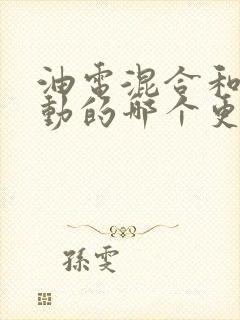 油電混合和
動的哪个更
孫雯